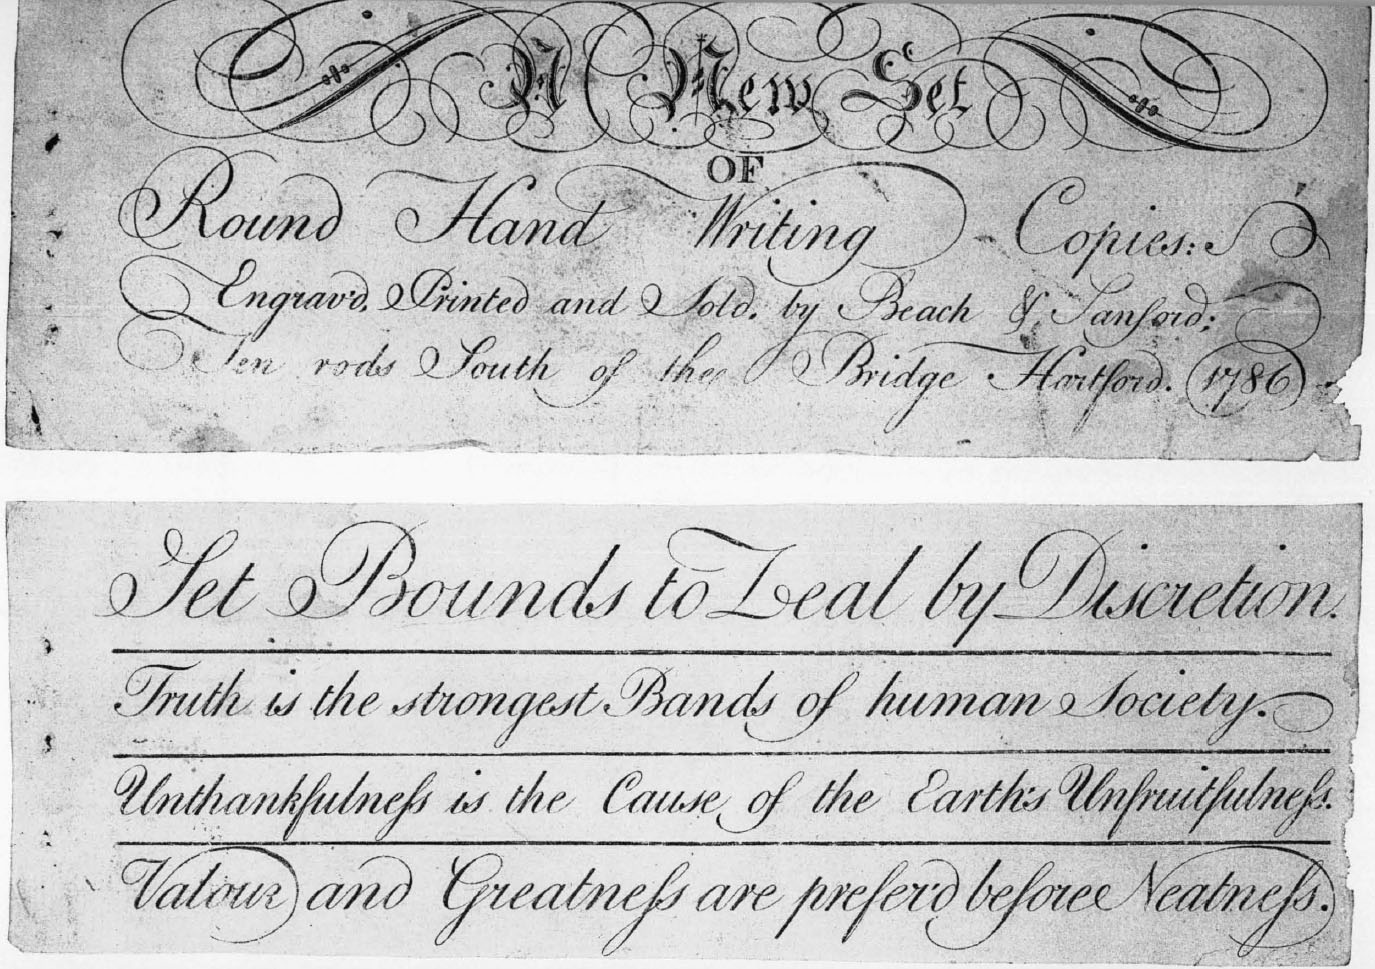 A New Set
OF
Round Hand Writing Copies:
Engrav'd, Printed and Sold, by Beach & Sanford;
Ten rods South of the Bridge Hartford. 1786
Set Bounds to Zeal by Discretion.
Truth is the strongest Bands of human Society.
Unthankfulneſs is the Cause of the Earth's Unfruitfulneſs.
Valour and Greatneſs are prefer'd before Neatneſs.